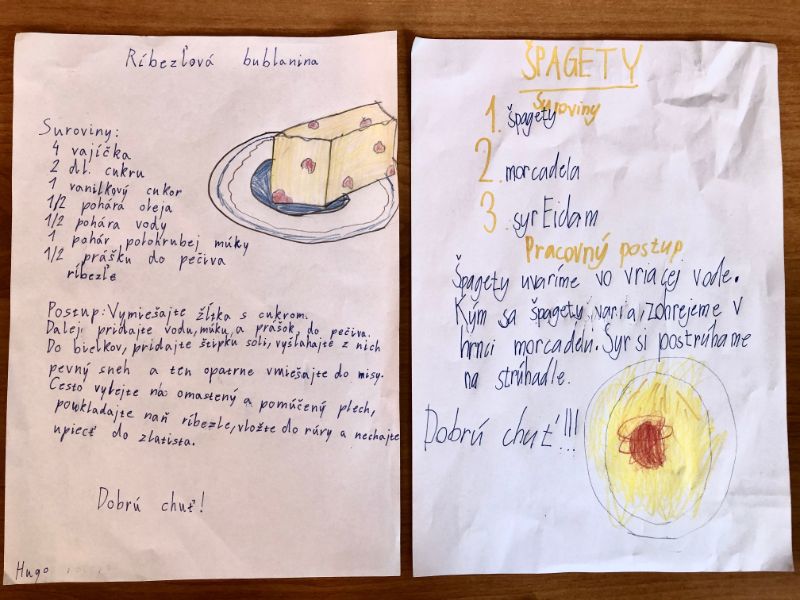 Ríbezľová bublanina
Suroviny:
4 vajíčka
2 dl. cukru
1 vanilkový cukor
1/2 pohárá oleja
1/2 pohára vody
1 pohár polohrubej múky
1/2 prášku do pečiva
ríbezle
Postup: Vymiešajte žĺtka s cukrom.
Dalej pridajte vodu, múku, a prášok, do pečiva.
Do bielkov, pridajte štipku soli, vyšľahajte z nich
pevný sneh a ten opatrne vmiešajte do misy.
Cesto vylejte na omastený a pomúčený plech,
poukladajte naň ríbezle, vložte do rúry a nechajte
upiecť do zlatista.
Dobrú chuť!
Hugo
ŠPAGETY
Suroviny
1. špagety
2. morcadela
3. syr Eidam
Pracovný postup
Špagety uvaríme vo vriacej vode.
Kým sa špagety varia, zohrejeme v
hrnci morcadelu. Syr si postrúhame
na strúhadle.
Dobrú chuť!!!